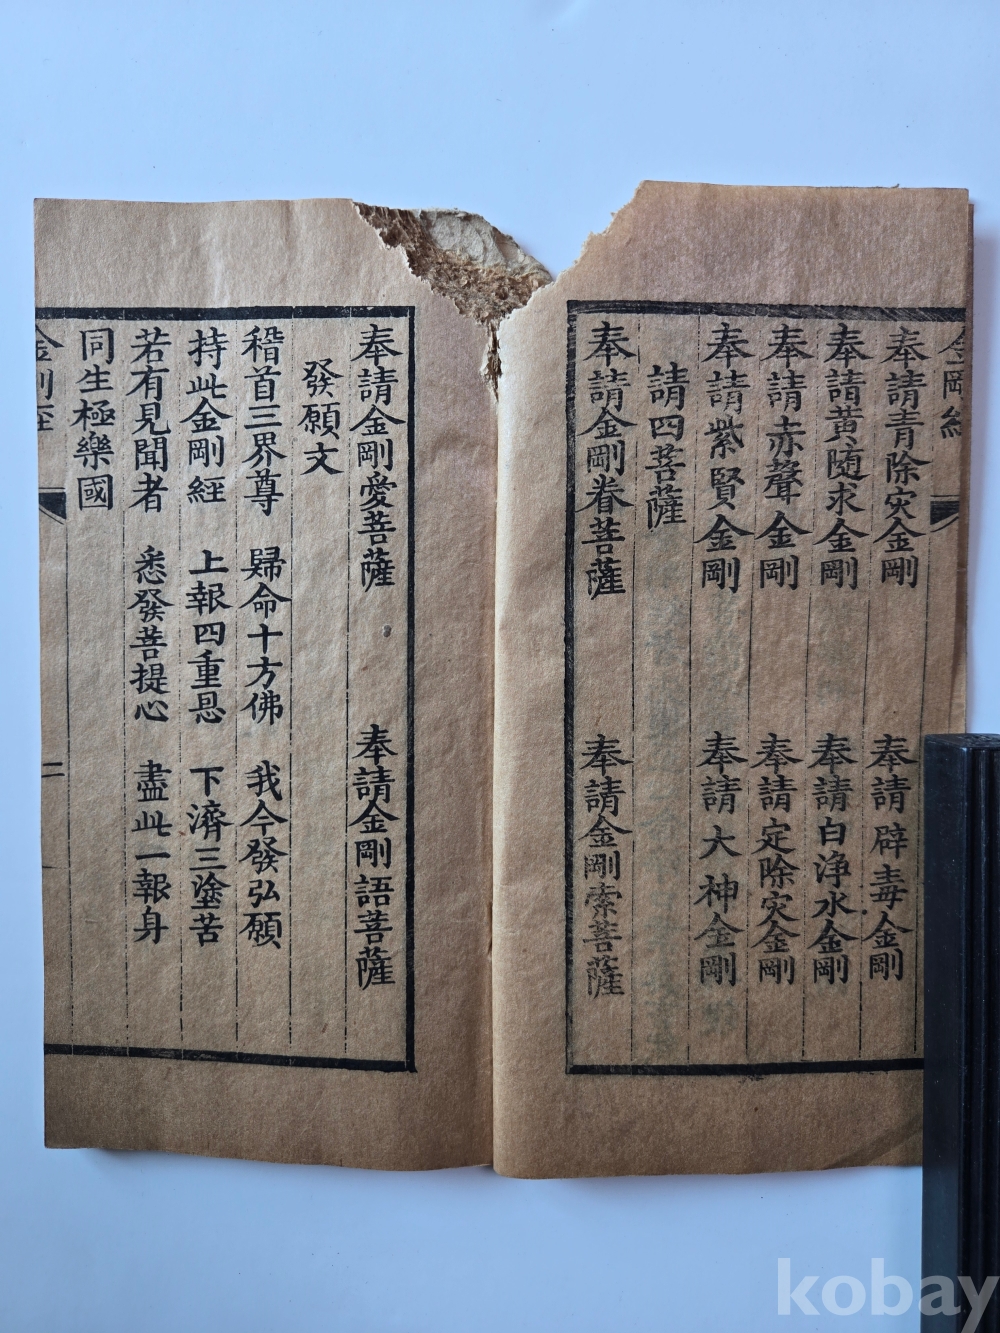 奉請青除灾金剛　奉請辟毒金剛
奉請黄随求金剛　奉請白浄水金剛
奉請赤聲金剛　奉請定除灾金剛
奉請紫賢金剛　奉請大神金剛
請四菩薩
奉請金剛眷菩薩　奉請金剛索菩薩
奉請金剛愛菩薩　奉請金剛語菩薩
發願文
稽首三界尊　歸命十方佛　我今發弘願
持此金剛經　上報四重恩　下濟三塗苦
若有見聞者　悉發菩提心　盡此一報身
同生極樂國
二
kobay